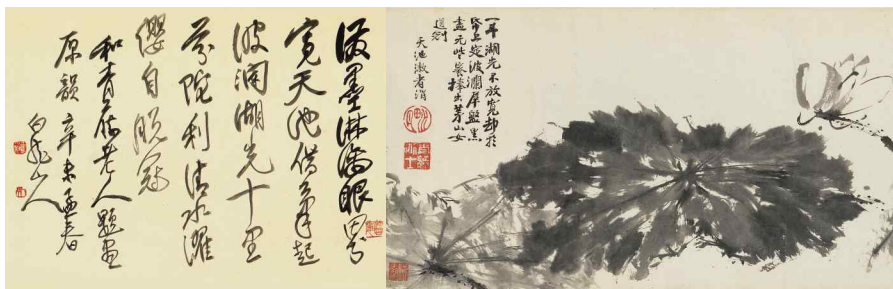 潑墨淋漓眼界
寬天池借筆起
波瀾湖光十里
芬陀利清水濯
纓自脫冠
和青藤老人題畫
原韻 辛未孟春
白龍山人
湖光不放寬却於
上 波瀾 盤黑
盡 捧出茅山女
道
天池漱者渭